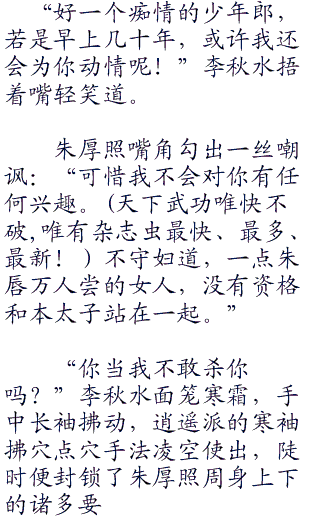 “好一个痴情的少年郎，
若是早上几十年，或许我还
会为你动情呢！”李秋水捂
着嘴轻笑道。
朱厚照嘴角勾出一丝嘲
讽：“可惜我不会对你有任
何兴趣。(天下武功唯快不
破,唯有杂志虫最快、最多、
最新！)不守妇道，一点朱
唇万人尝的女人，没有资格
和本太子站在一起。”
“你当我不敢杀你
吗？”李秋水面笼寒霜，手
中长袖拂动，逍遥派的寒袖
拂穴点穴手法凌空使出，陡
时便封锁了朱厚照周身上下
的诸多要